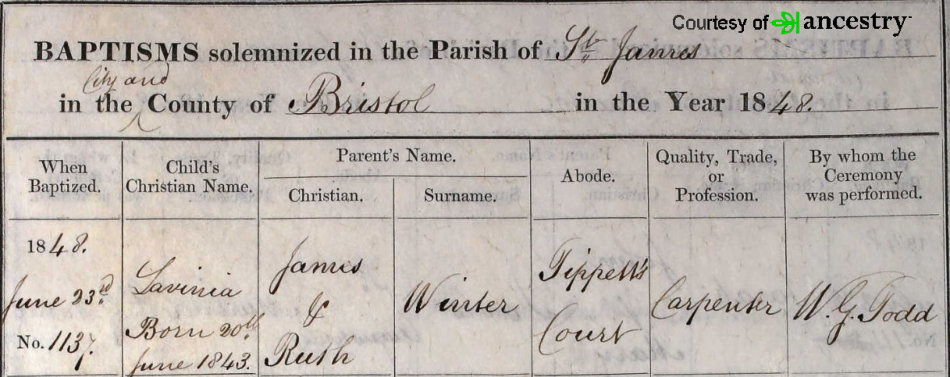 Courtesy of ancestry
BAPTISMS solemnized in the Parish of St. James
City and
in the County of Bristol in the Year 1848.
When Baptized.
Child's Christian Name.
Parent's Name.
Christian.
Surname.
Abode.
Quality, Trade, or Profession.
By whom the Ceremony was performed.
1848.
June 23d.
No. 1137.
Lavinia
Born 20th
June 1843.
James
&
Ruth
Winter
Tippett's
Court
Carpenter
W. G. Todd